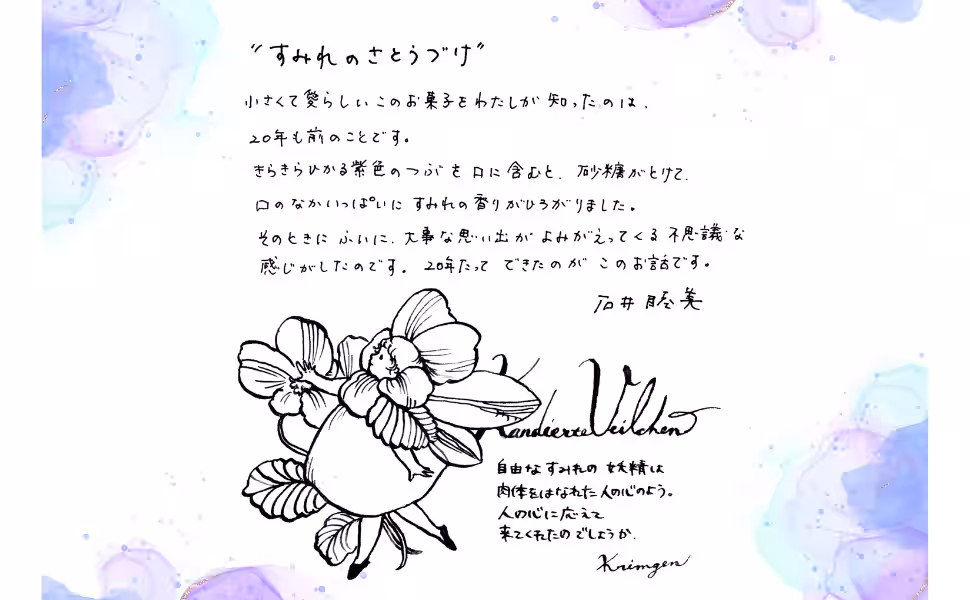 "すみれのさとうづけ"
小さくて愛らしいこのお菓子をわたしが知ったのは、
20年も前のことです。
きらきらひかる紫色のつぶを口に含むと、砂糖がとけて、
口のなかいっぱいにすみれの香りがひろがりました。
そのときにふいに、大事な思い出がよみがえってくる不思議な
感じがしたのです。20年たってできたのがこのお話です。
石井睦美
Kandierte Veilchen
自由なすみれの妖精は
肉体をはなれた人の心のよう。
人の心に応えて
来てくれたのでしょうか.
Krimgen